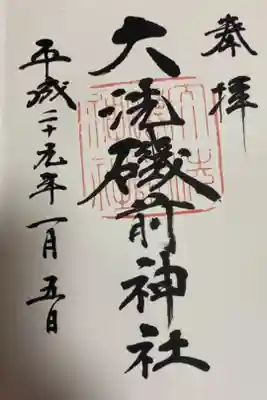 奉拝
大洗磯前神社
平成二十九年一月五日